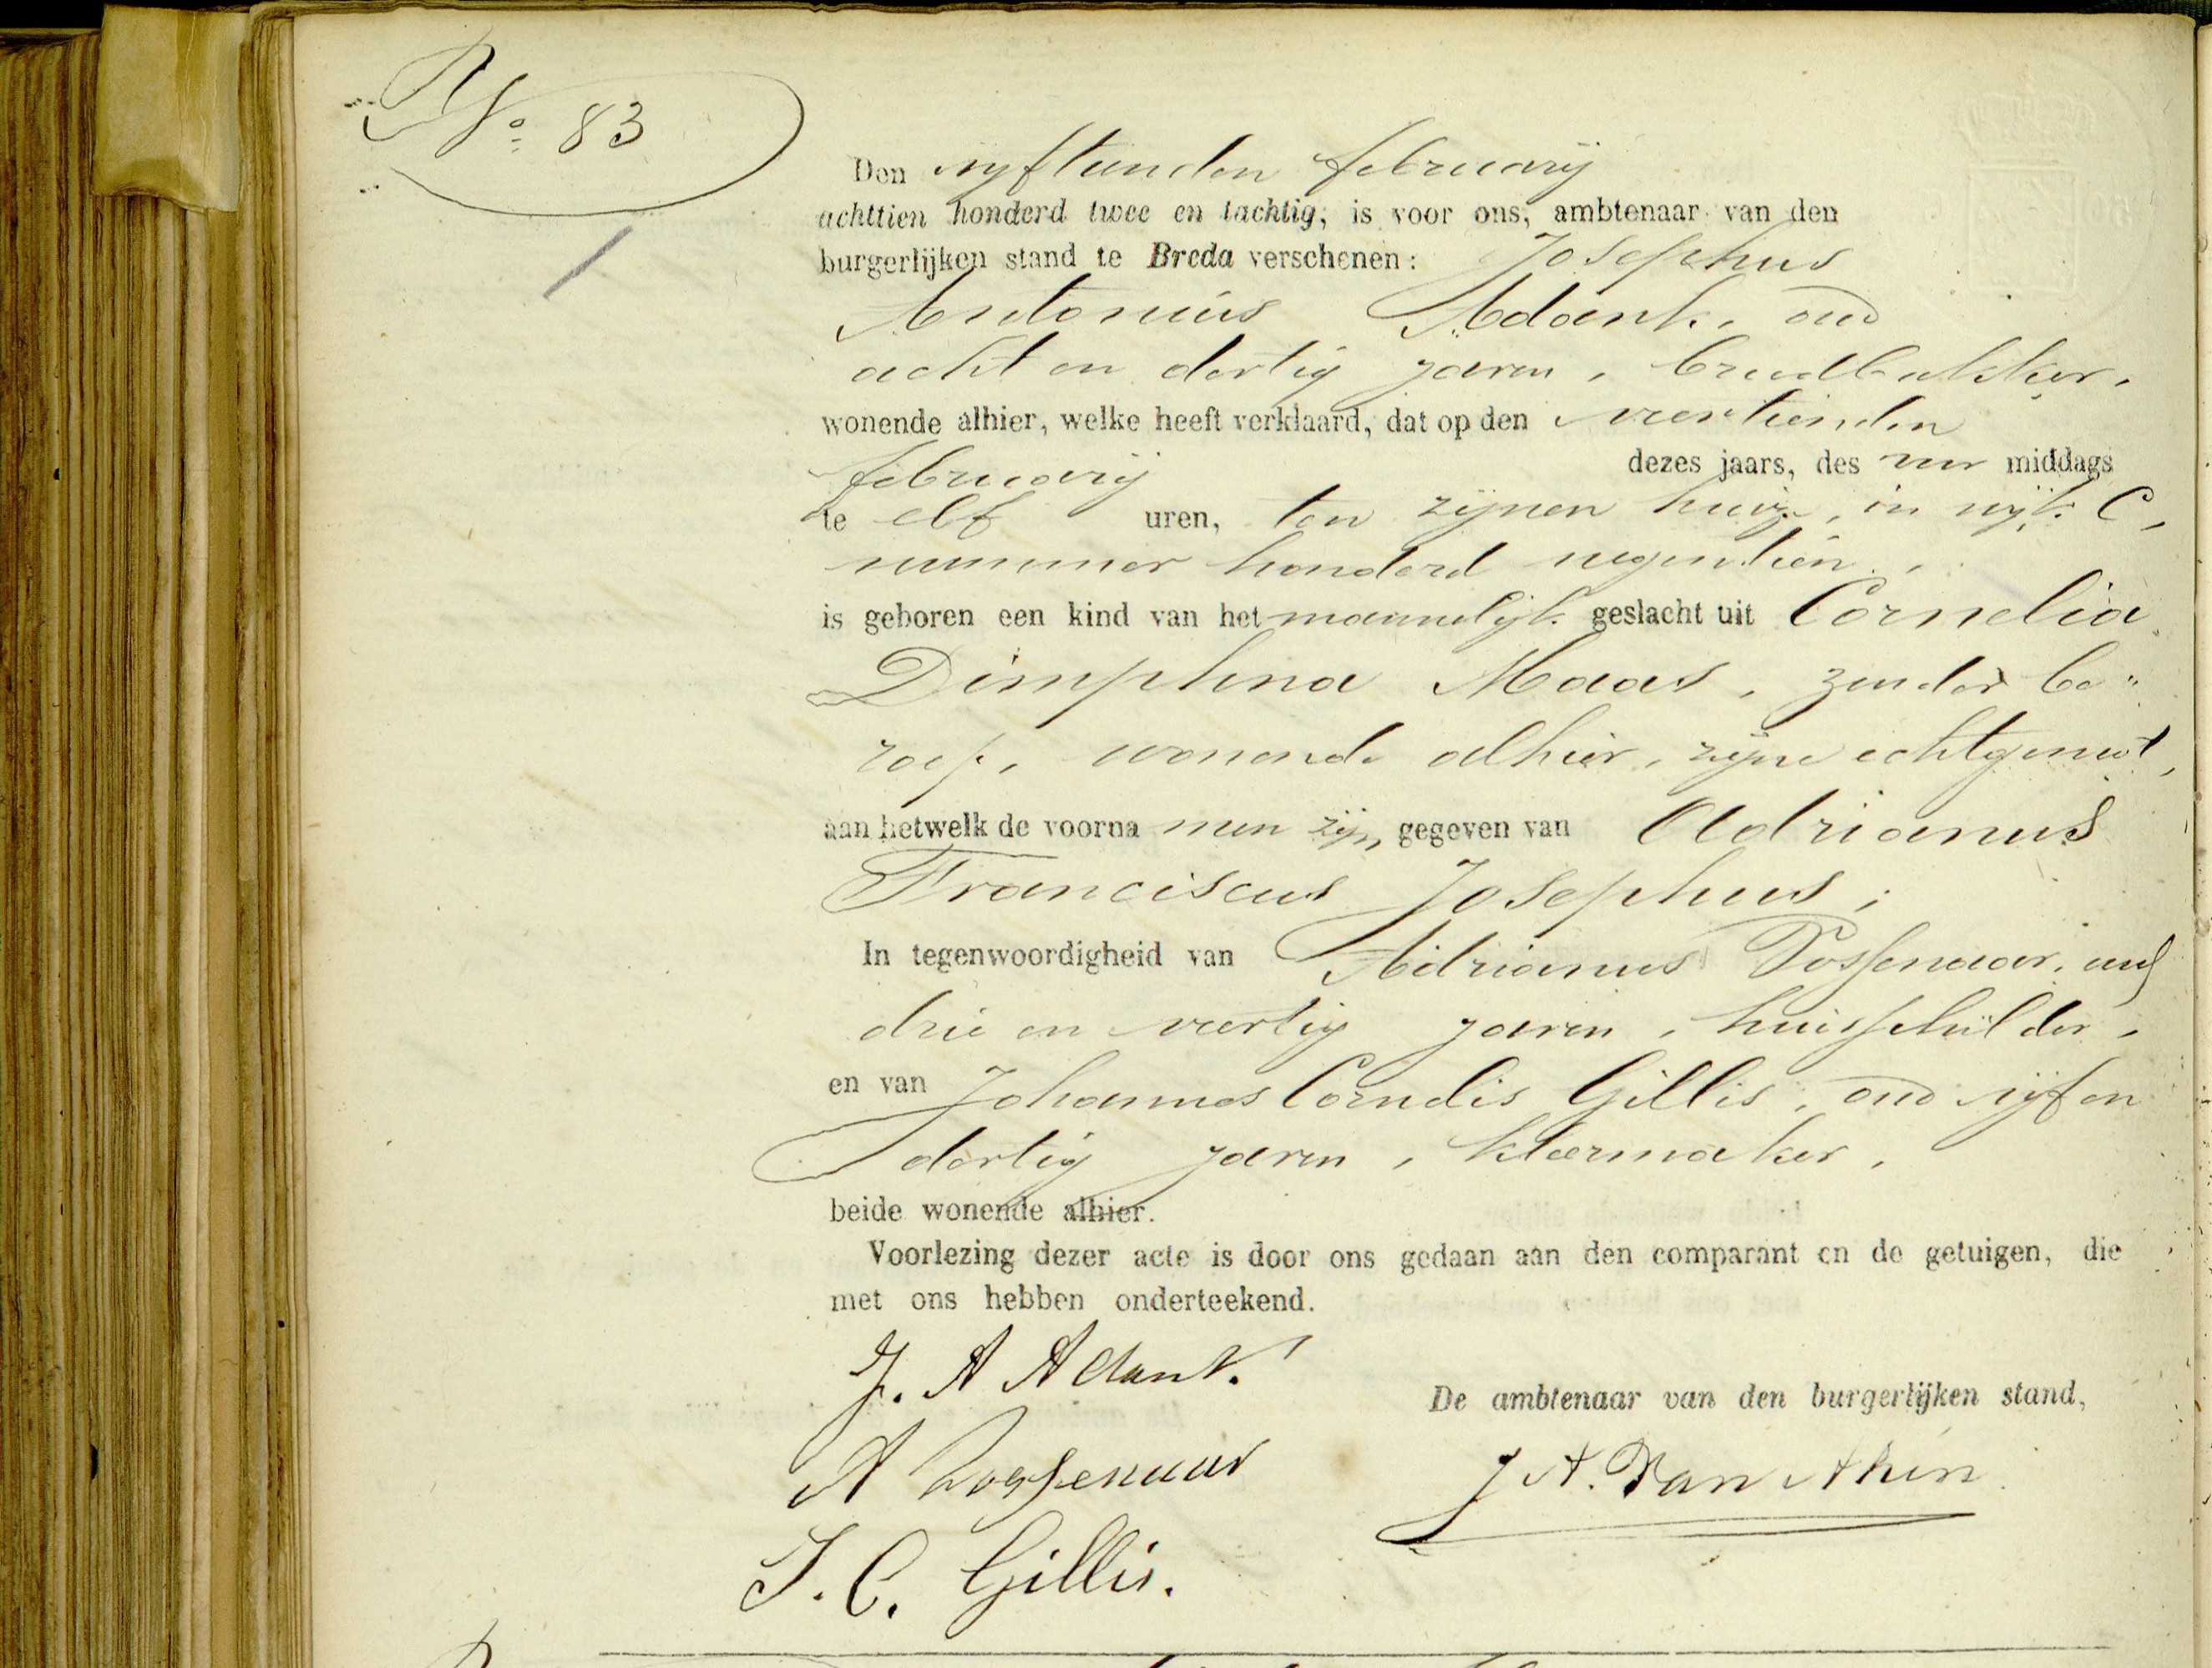 No. 83
Den vyftienden februarij
achttien honderd twee en tachtig, is voor ons, ambtenaar van den
burgerlijken stand te Breda verschenen: Josephus
Antonius Adank, oud
acht en dertig jaren, broodbakker,
wonende alhier, welke heeft verklaard, dat op den veertienden
februarij dezes jaars, des voor middags
te elf uren, ten zijnen huize, in wijk C,
nummer honderd negentien,
is geboren een kind van het mannelijk geslacht uit Cornelia
Dimphna Maas, zonder be-
roep, wonende alhier, zijne echtgenoot,
aan hetwelk de voorna men zijn gegeven van Adrianus
Franciscus Josephus;
In tegenwoordigheid van Adrianus Possenaar, oud
drie en veertig jaren, huisschilder,
en van Johannes Cornelis Gillis, oud vijf en
dertig jaren, kleermaker,
beide wonende alhier.
Voorlezing dezer acte is door ons gedaan aan den comparant en de getuigen, die
met ons hebben onderteekend.
J. A Adank.
De ambtenaar van den burgerlijken stand,
A Possenaar
J A. Van
J. C. Gillis.